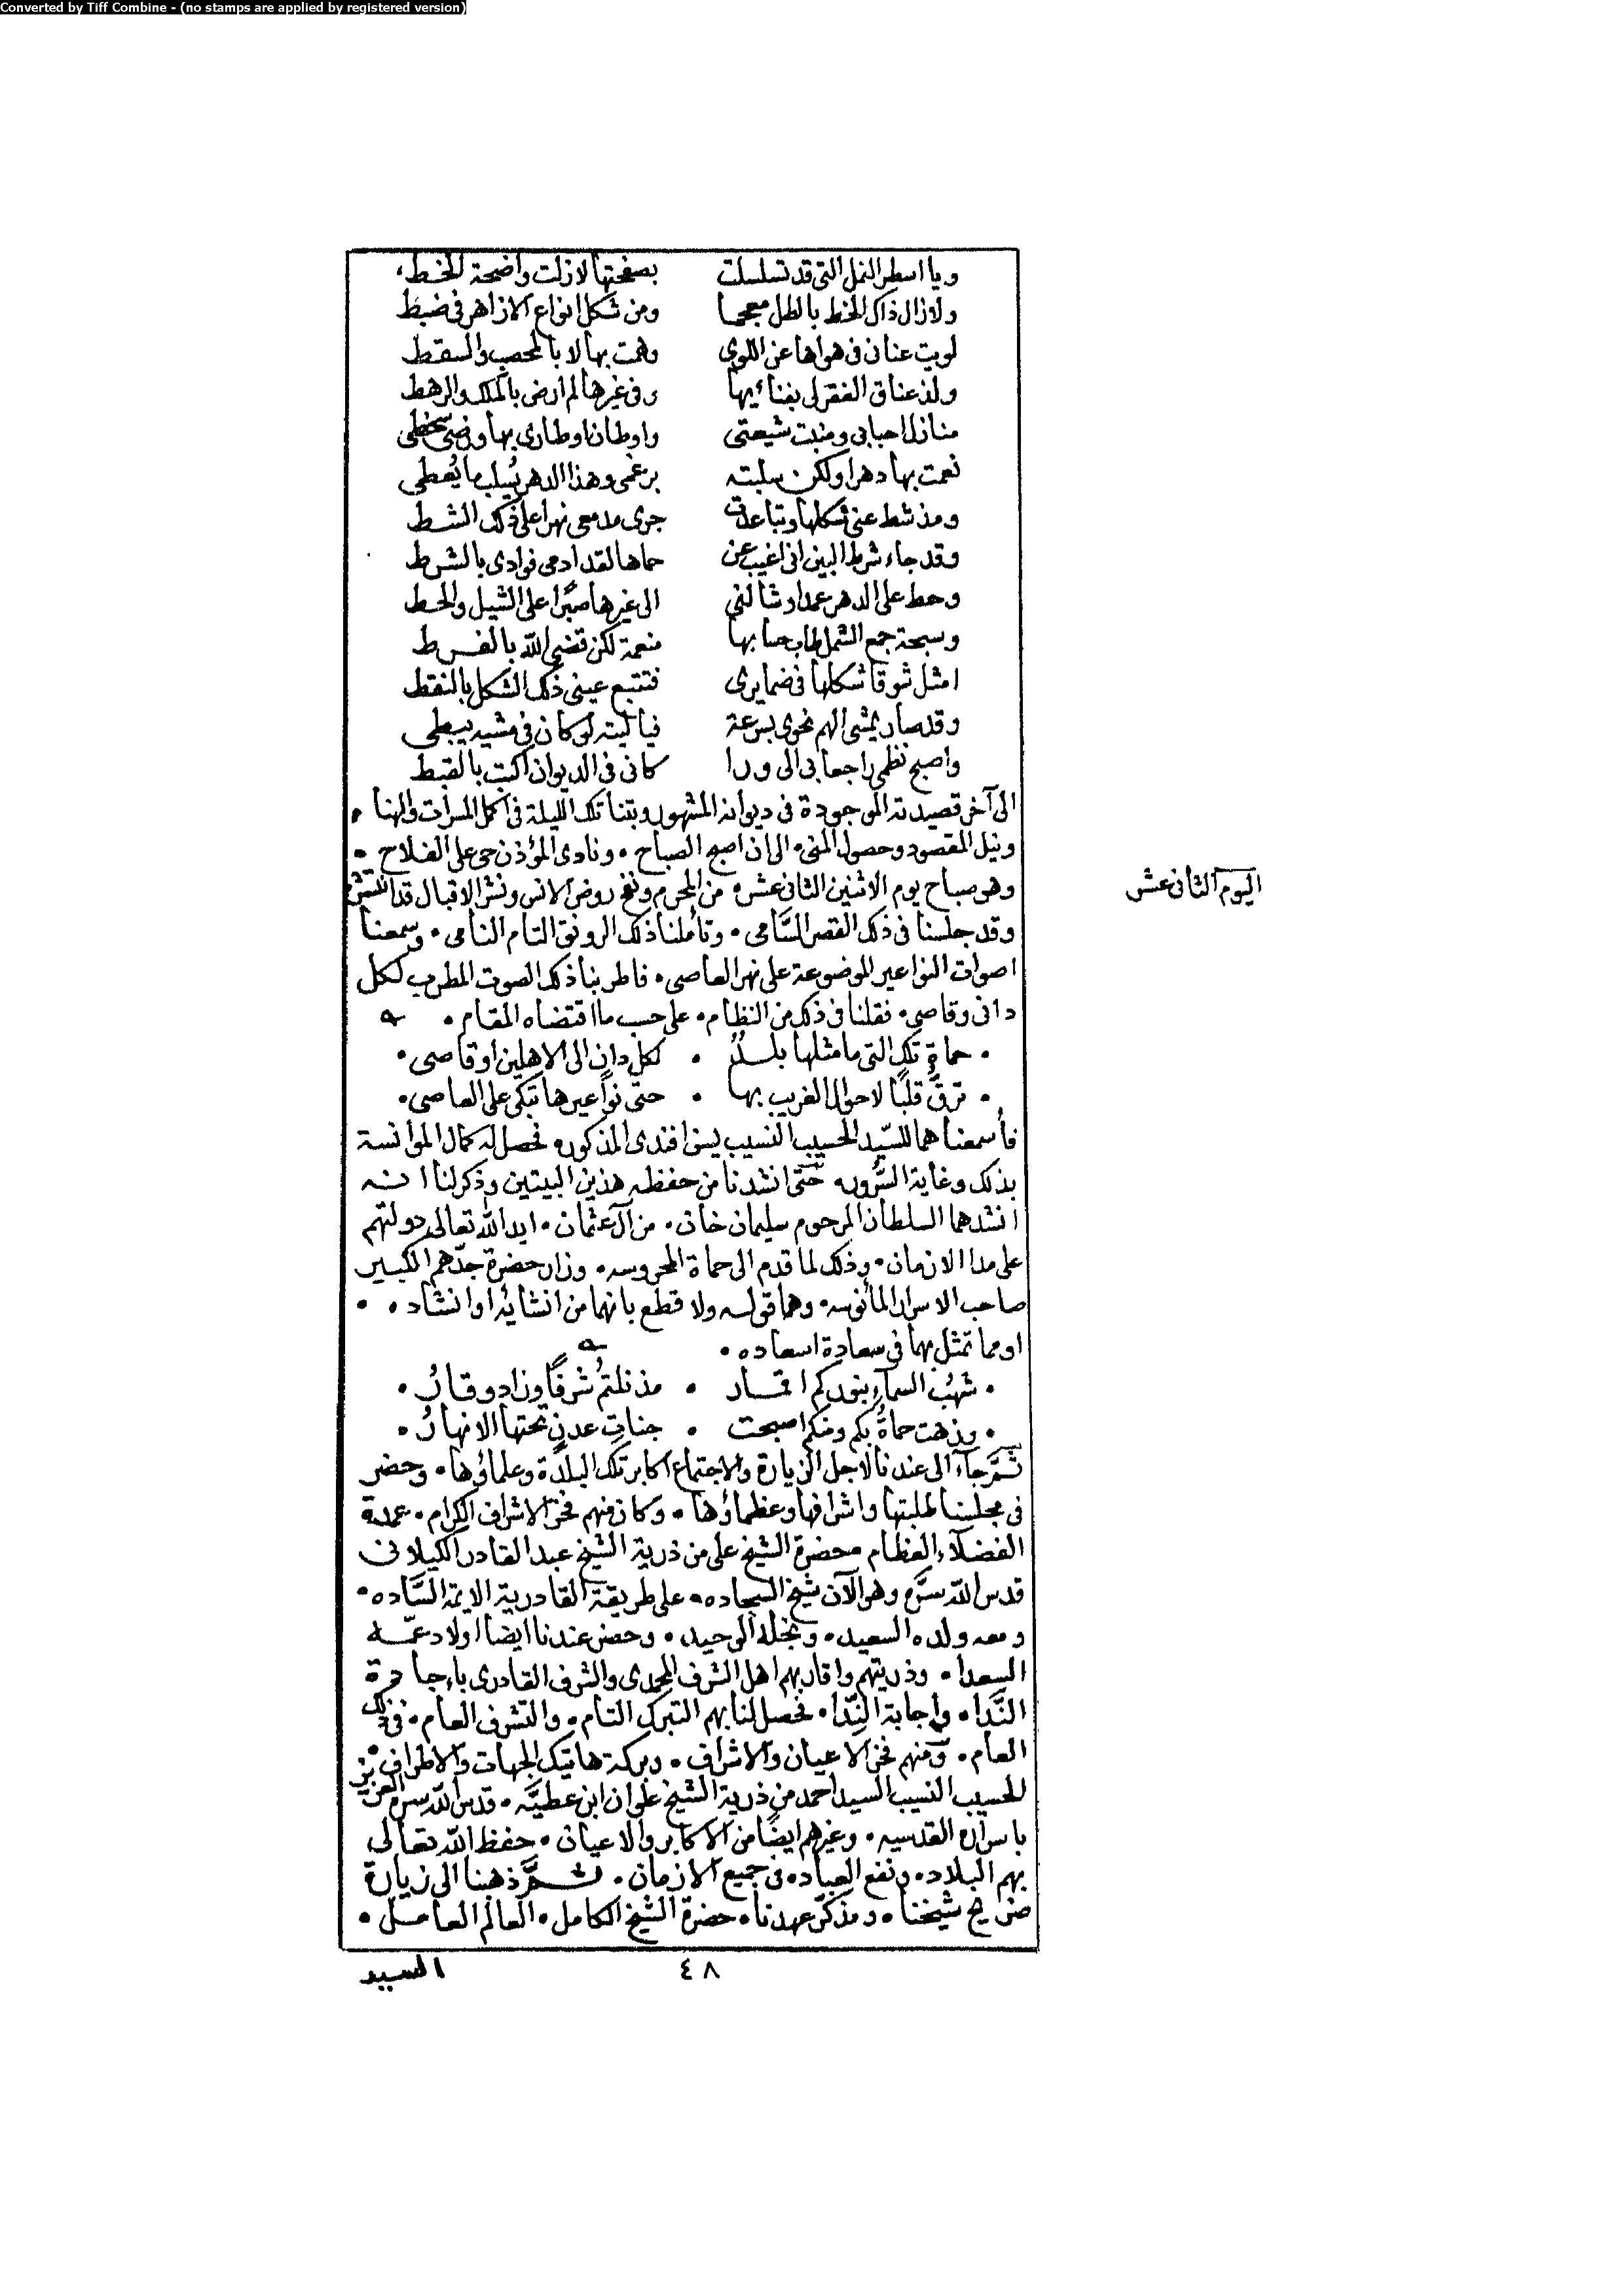 Converted by Tiff Combine - (no stamps are applied by registered version)
ويا اسطر النمل التى قد تسلسلت بصفحتها لازلت واضحة الخط
ولازال ذاك الخط بالطل معجما ومن شكل انواع الازاهر فى ضبط
لويت عنانى فى هواها عن اللوى وهمت بها لا بالمحصب والسقط
ولذ عناق الفقر لى بفنائها وفى غيرها لم ارض بالملك والرهط
منازل احبابى ومنبت شيعتى واوطان اوطارى بها ورضى سخطى
نعمت بها دهرا ولكن سلبته برغمى وهذا الدهر يُسلب ما يُعطى
ومذ شط عنى شكلها وتباعدت جرى مدمعى نهرا على ذلك الشط
وقد جاء شرط البين انى اغيب عن حماها لقد ادمى فوادى بالشرط
وحط على الدهر عمدا وشالنى الى غيرها صبرًا على الشيل والحط
وسبحة جمع الشمل طاب حسابها منعمة لكن قضى الله بالفرط
امثل شوقا شكلها فى ضمايرى فتتبع عينى ذلك الشكل بالنقط
وقد صار يمشى الهم نحوى بسرعة فيا ليته لو كان فى مشيه يبطى
واصبح نظمى راجعا بى الى ورا كانى فى الديوان اكتب بالقبط
الى آخر قصيدته الموجودة فى ديوانه المشهور وبتنا تلك الليلة فى اكمل المسرات والهنا •
ونيل المقصود وحصول المنى • الى ان اصبح الصباح • ونادى المؤذن حى على الفلاح •
وهو صباح يوم الاثنين الثانى عشر من المحرم ونفح روض الانس ونشر الاقبال قد انتشر
اليوم الثانى عشر
وقد جلسنا فى ذلك القصر السَّامى • وتأملنا ذلك الرونق التام النامى • وسمعنا
اصوات النواعير الموضوعة على نهر العاصى • فاطربنا ذلك الصوت المطرب لكل
دانى وقاصى • فقلنا فى ذلك من النظام • على حسب ما اقتضاه المقام •
• حماة تلك التى ما مثلها بلدٌ • لكل دان الى الاهلين او قاصى •
• ترقّ قلبًا لاحوال الغريب بها • حتى نواعيرها تبكى على العاصى •
فأسمعناهما للسيّد الحسيب النسيب يس افندى المذكور • فحصل له كمال الموانسة
بذلك وغاية السُّرور • حتى انشدنا من حفظه هذين البيتين وذكر لنا انه
انشدهما السلطان المرحوم سليمان خان • من آل عثمان • ايد الله تعالى دولتهم
على مدا الازمان • وذلك لما قدم الى حماة المحروسه • وزار حضرة جدّهم الكبير
صاحب الاسرار المأنوسه • وهما قوله ولا قطع بانهما من انشائه او انشاده •
او مما تمثل بهما فى سعادة اسعاده •
• شهبُ السمآءِ بنوركم اقمار • مذ نلتمُ شرفًا وزاد وقارُ •
• وزهت حماةُ بكم ومنكم اصبحت • جنات عدنٍ تحتها الانهارُ •
ثمَّ جآء الى عندنا لاجل الزيارة والاجتماع اكابر تلك البلدة وعلماؤها • وحضر
فى مجلسنا طلبتها واشرافها وعظماؤها • وكان منهم فخر الاشراف الكرام • عمدة
الفضلآء العظام • حضرة الشيخ على من ذرية الشيخ عبد القادر الكيلانى
قدس الله سرَّه وهو الآن شيخ السجاده • على طريقة القادرية الايمة السَّاده •
ومعه ولده السعيد • ونجله الوحيد • وحضر عندنا ايضا اولاد عمّه
السعدا • وذريتهم واقاربهم اهل الشرف المحمدى والشرف القادرى
النَّدا • واجابة النِّدا • فحصل لنا بهم التبرك التام • والتشرف العام • فى ذلك
العام • ومنهم فخر الاعيان والاشراف • وبركة هاتيك الجهات والاطراف •
الحسيب النسيب السيد احمد من ذرية الشيخ علوان ابن عطيَّه • قدس الله سره العزيز
باسراره القدسيه • وغيرهم ايضًا من الاكابر والاعيان • حفظ الله تعالى
بهم البلاد • ونفع العباد • فى جميع الازمان • ثمَّ ذهبنا الى زيارة
ضريح شيخنا • ومذكّر عهدنا • حضرة الشيخ الكامل • العالم العامل •
٤٨
السيد